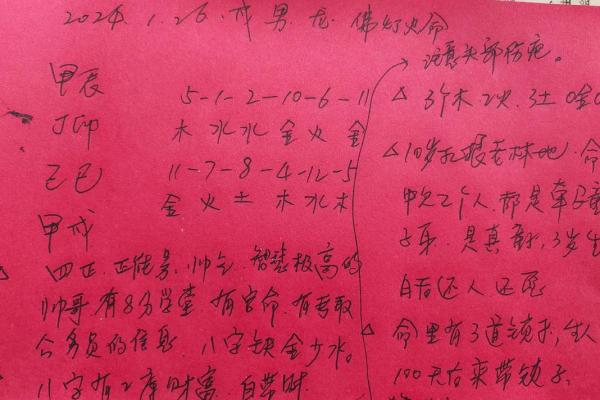 2024.1.26.戌 男.龙.佛灯火命
甲辰
丁卯
己巳
甲戌
5-1-2-10-6-11
木水水金火金
11-7-8-4-12-5
金火土木水木
四正.正能量.帅气.智慧极高的
帅哥.有8分学堂.有官命.有考取
公务员的信息.八字缺金少水。
八字有2库财富.自带财
注意头部伤疤。
△3个木.2火.3土
△10岁 老林地.命
中欠2个人.都是牵
3岁
白 还人还
△命里有3道锁.
100天后来带锁